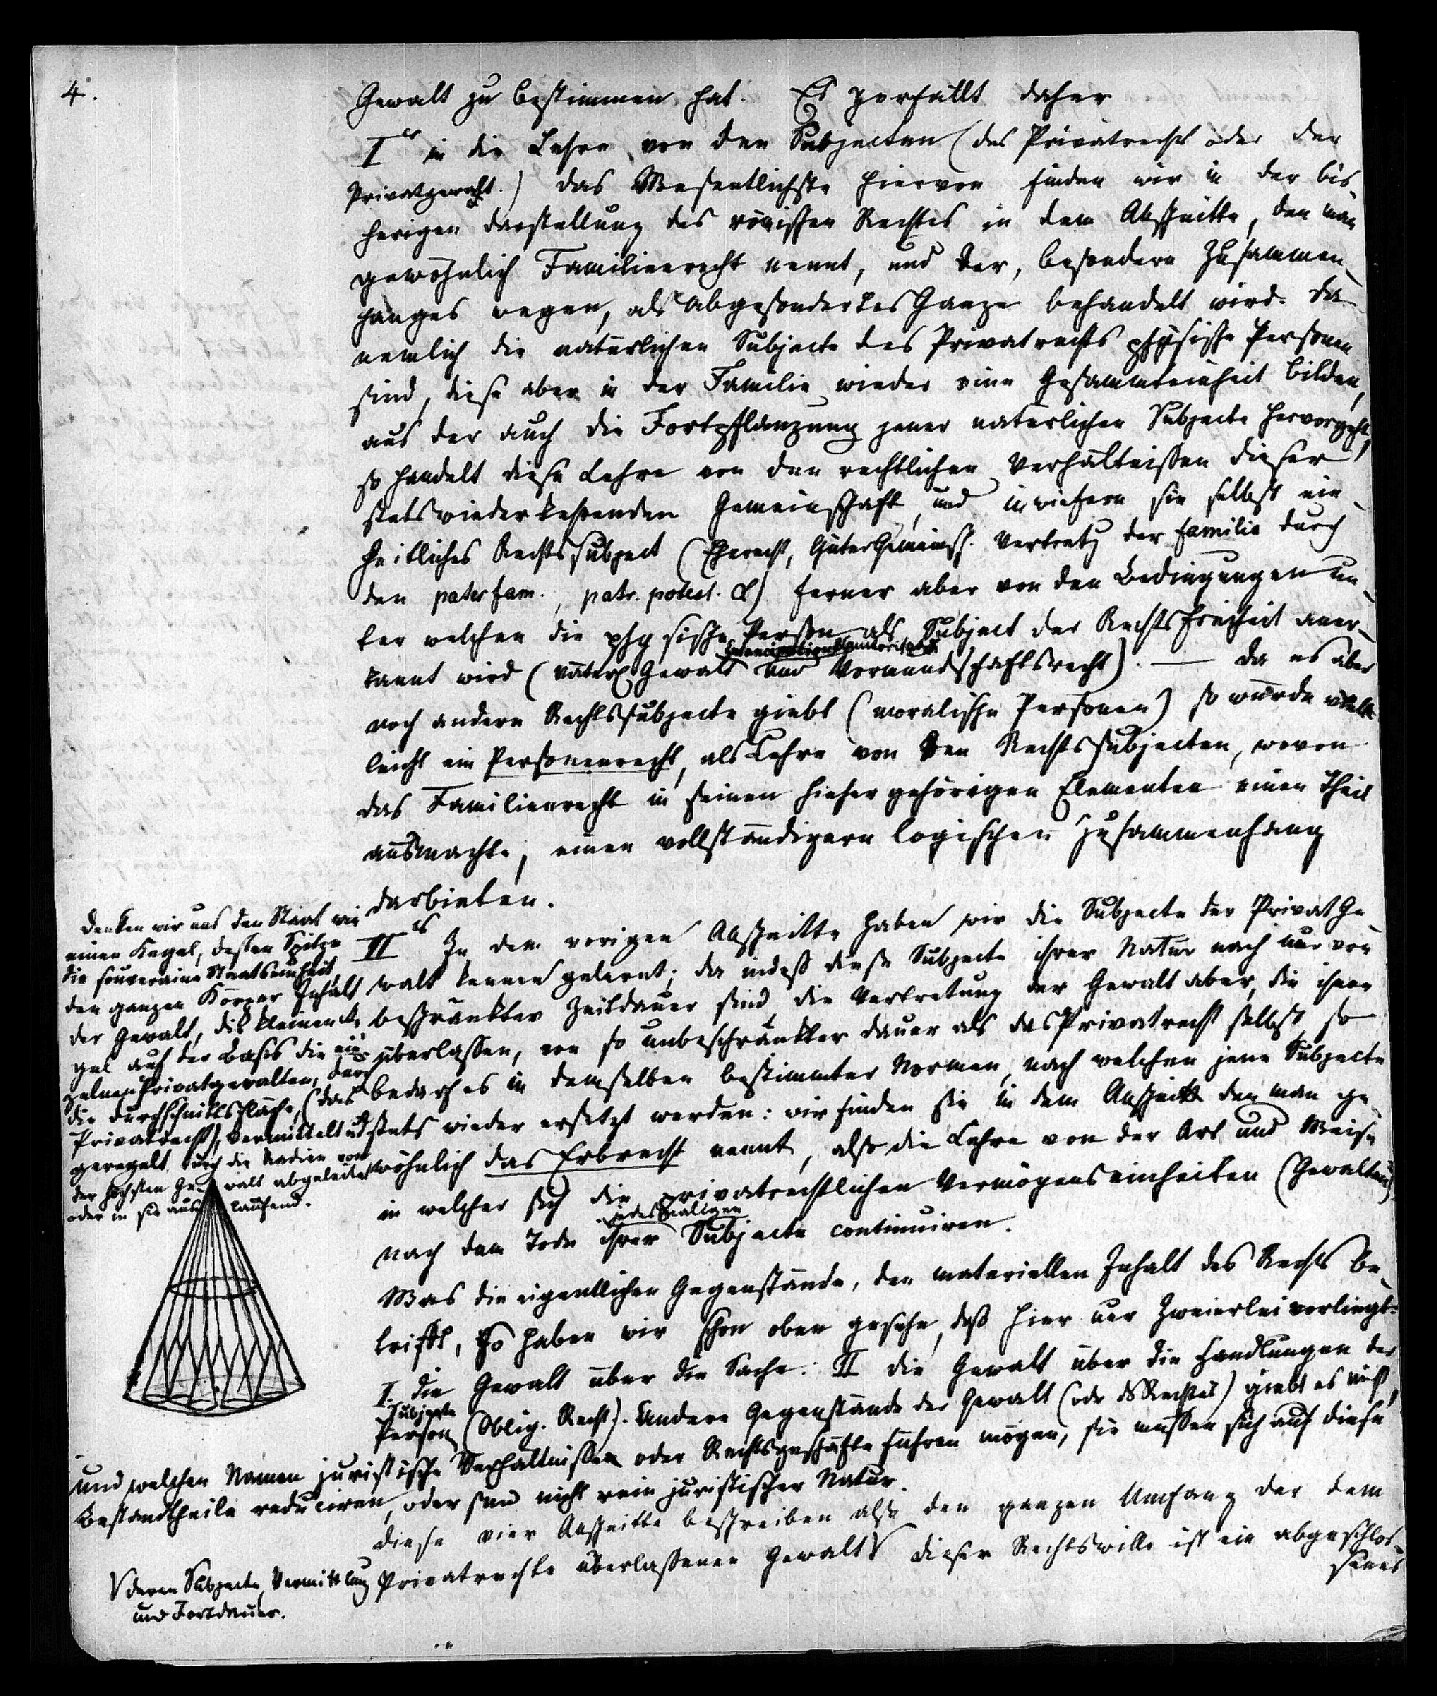 4.
Gewalt zu bestimmen hat. Es zerfällt daher
I in die Lehre von den Subjecten (des Privatrechts oder der
Privatgewalt.) Das Wesentlichste hiervon finden wir in der bis-
herigen Darstellung des römischen Rechtes in dem Abschnitte, den man
gewöhnlich Familienrecht nennt, und der, besondern Zusammen-
hanges wegen, als abgesondertes Ganze behandelt wird. Da
nemlich die natürlichen Subjecte des Privatrechts physische Personen
sind, diese aber in der Familie wieder eine Gesammteinheit bilden,
aus der auch die Fortpflanzung jener natürlichen Subjecte hervorgeht,
so handelt diese Lehre von den rechtlichen Verhältnissen dieser
stets wiederkehrenden Gemeinschaft, und inwiefern sie selbst ein
heitliches Rechtssubject (Eherecht, Vertretg der Familie durch
den paterfam., patr. potest. ) ferner aber von den Bedingungen un-
ter welchen die physische Person als Subject der Rechtsfreiheit aner-
kannt wird (väterl Gewalt und Vormundschaftsrecht). — Da es aber
noch andere Rechtssubjecte giebt (moralische Personen) so würde viel-
leicht ein Personenrecht, als Lehre von den Rechtssubjecten, wovon
das Familienrecht in seinen hieher gehörigen Elementen einen Theil
ausmachte, einen vollständigern logischen Zusammenhang
darbieten.
II In dem vorigen Abschnitte haben wir die Subjecte der Privat Ge
walt kennen gelernt; da indeß diese Subjecte ihrer Natur nach nur von
beschränkter Zeitdauer sind, die Vertretung der Gewalt aber, die ihnen
überlassen, von so unbeschränkter Dauer als das Privatrecht selbst, so
bedarf es in demselben bestimmter Normen, nach welchen jene Subjecte
stets wieder ersetzt werden: wir finden sie in dem Abschnitt den man ge-
wöhnlich das Erbrecht nennt, also die Lehre von der Art und Weise
in welcher sich die privatrechtlichen Vermögenseinheiten (Gewalten)
jedesmaligen
nach dem Tode ihrer Subjecte continuiren.
Was die eigentlichen Gegenstände, den materiellen Inhalt des Rechts be-
trifft, so haben wir schon oben gesehn, daß hier nur Zweierlei vorliegt:
I die Gewalt über die Sache: II die Gewalt über die Handlungen der
Subjecte
Person (Oblig. Recht). Andere Gegenstände der Gewalt (oder des Rechtes) giebt es nicht,
und welchen Namen juristische Verhältnissen oder Rechtsgeschäfte führen mögen, sie müssen sich auf diese
Bestandtheile reduciren, oder sind nicht rein juristischer Natur.
Diese vier Abschnitte beschreiben also den ganzen Umfang der dem
Privatrechte überlassenen Gewalt dieser Rechtswille ist ein abgeschlos-
senes
Denken wir uns den Staat wie
einen Kegel, dessen Spitze
die souveraine Staatseinheit,
den ganzen Körper Inhalt
der Gewalt, die kleinen Ke
gel auf der Basis die ein
zelnen Privatgewalten, durch
die Durchschnittsfläche, (das
Privatrecht) vermittelt und
geregelt durch die Radien von
der höchsten Gewalt abgeleitet
oder in sie auslaufend.
deren Subjecte, Vermittlung
und Fortdauer.